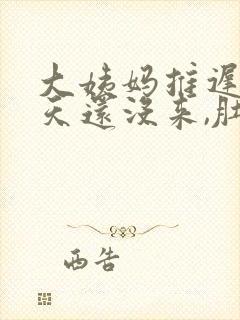 大姨妈推迟
天还没来,肚
西告